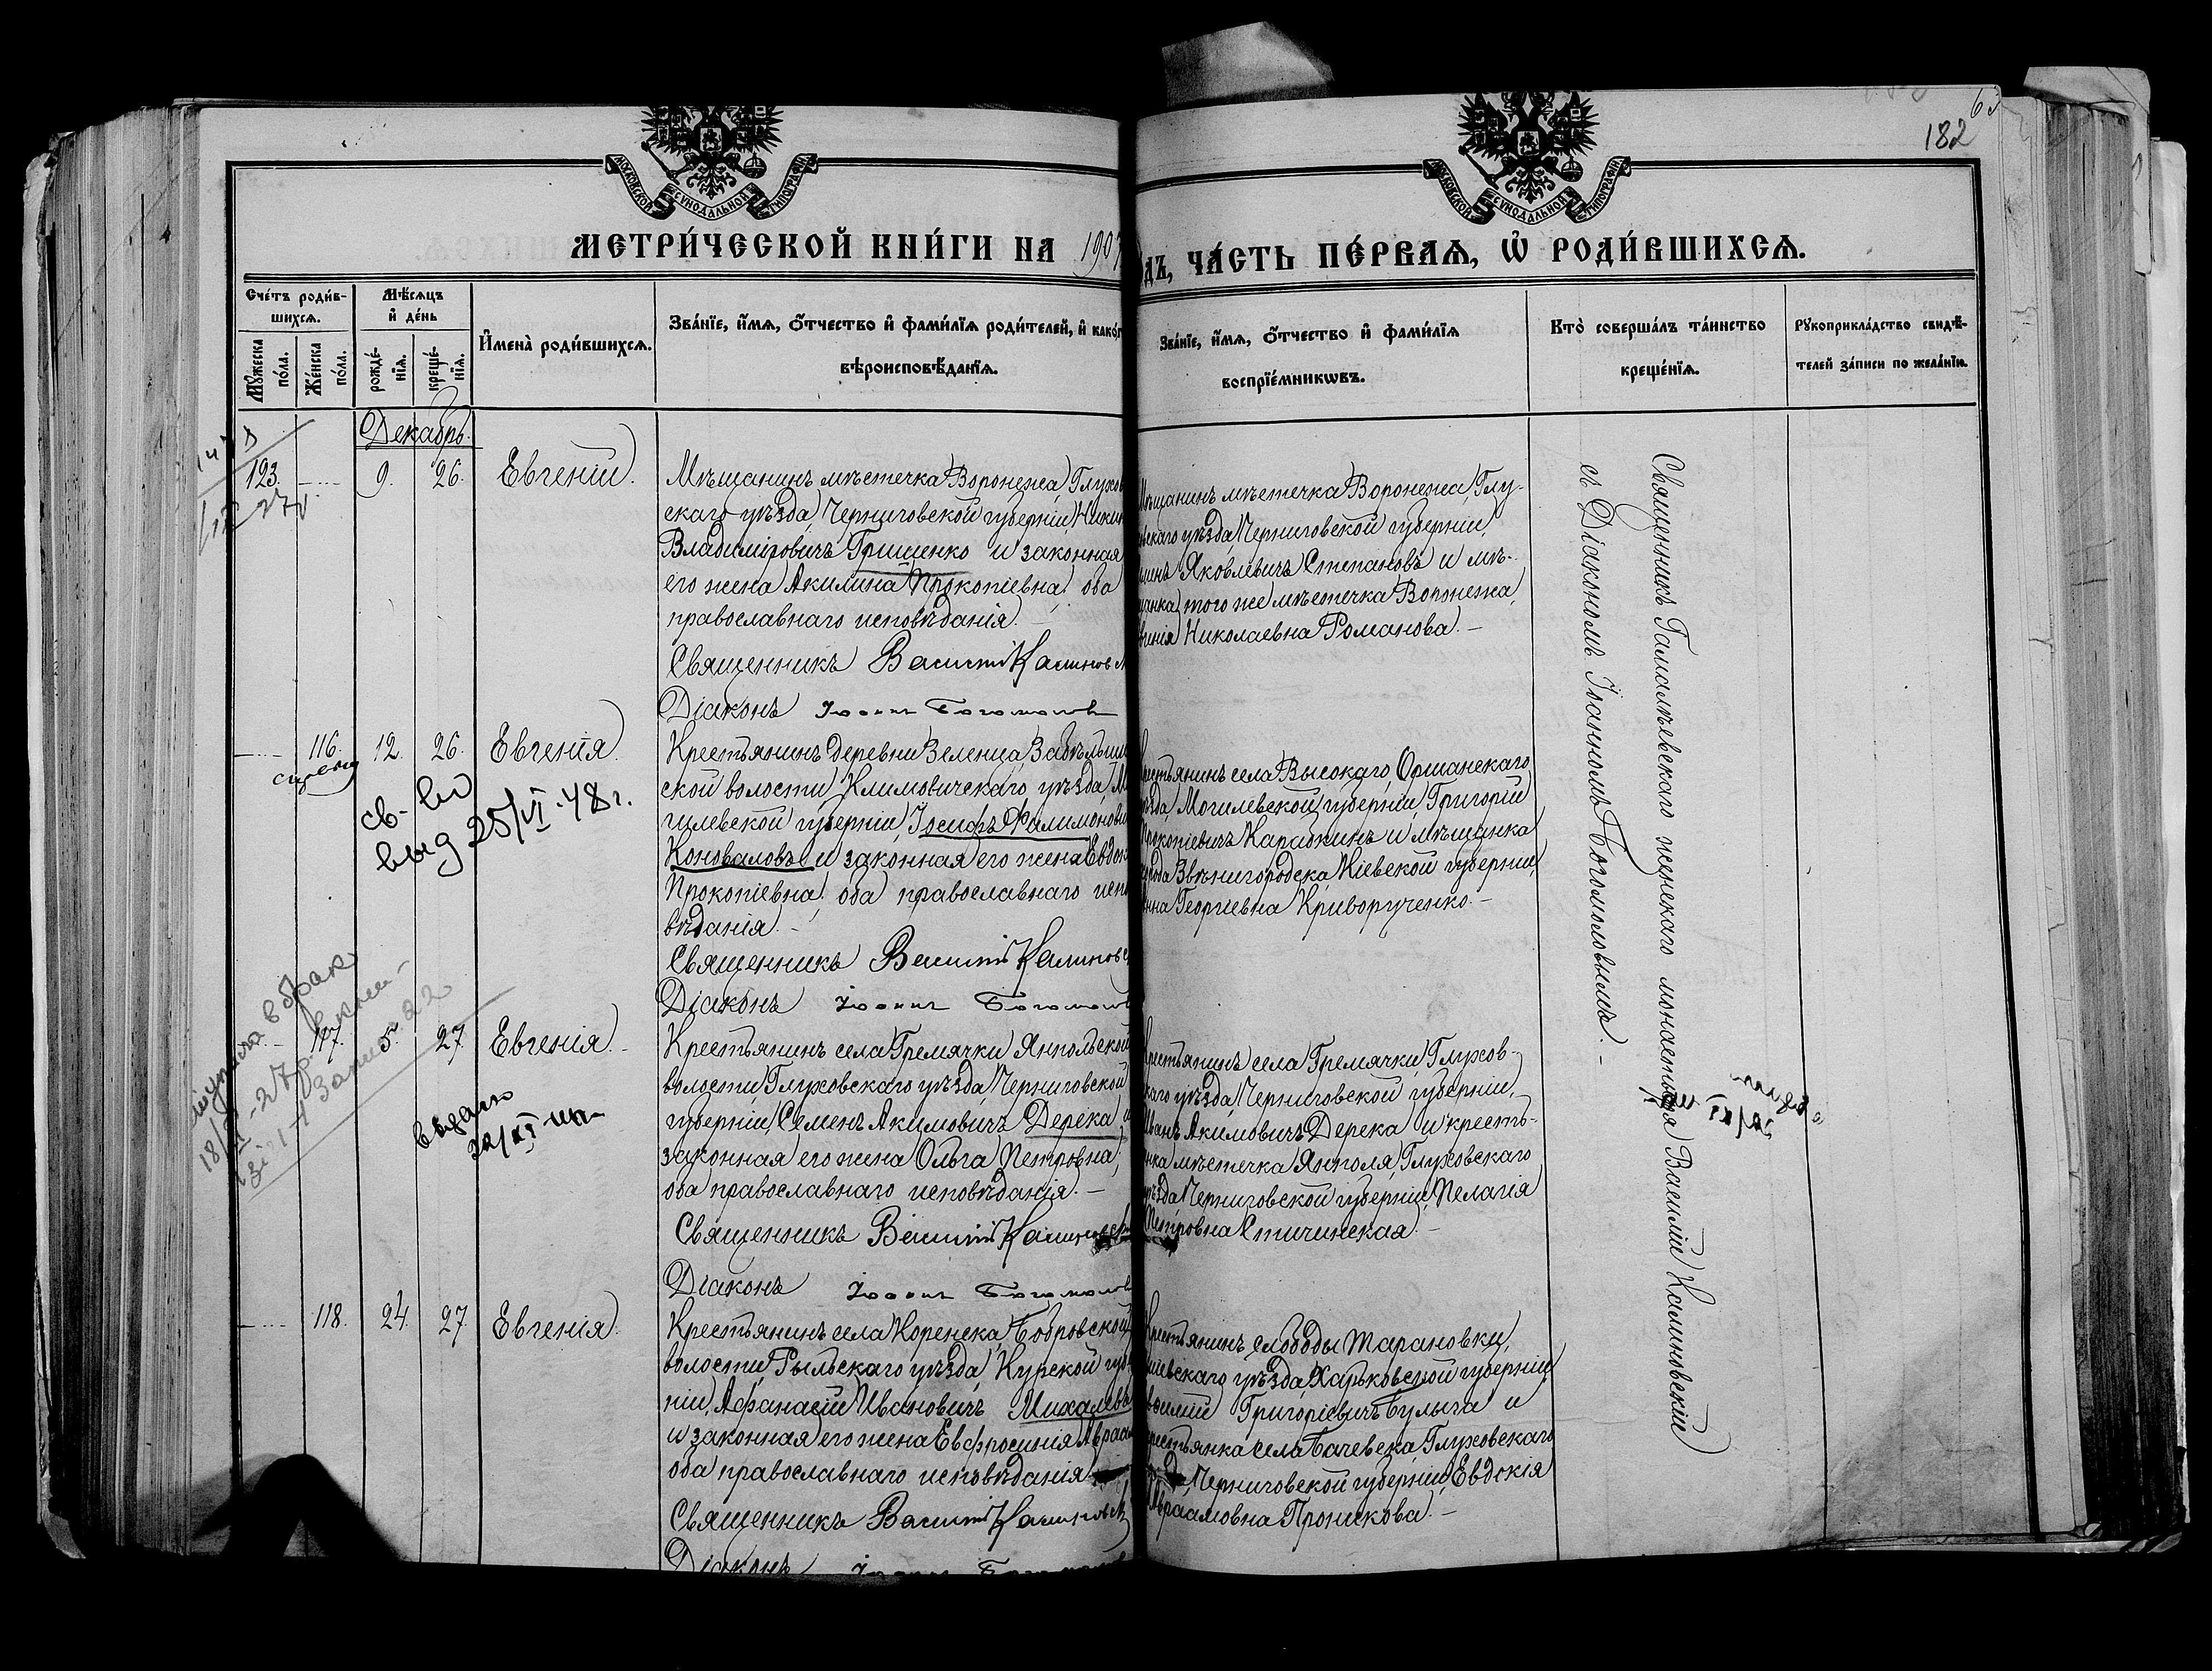 182
МОСКОВСКОЙ СУНОДАЛЬНОЙ ТИПОГРАФІИ
МОСКОВСКОЙ СУНОДАЛЬНОЙ ТИПОГРАФІИ
МЕТРИ́ЧЕСКОЙ КНИ́ГИ НА 1907
ДЪ, ЧА́СТЬ ПЕ́РВАѦ, Ѡ҆ РОДИ́ВШИХСѦ.
Сче́тъ роди́в-
шихсѧ.
Мꙋ́жеска
по́ла.
Же́нска
по́ла.
Мѣ́сѧцъ
и҆ де́нь
рожде́-
нїѧ.
креще́-
нїѧ.
И҆мена̀ роди́вшихсѧ.
Зва́нїе, и҆́мѧ, ѻ҆́тчество и҆ фами́лїѧ роди́телей, и҆ како́г
вѣроисповѣ́данїѧ.
Зва́нїе, и҆́мѧ, ѻ҆́тчество и҆ фами́лїѧ
воспрїе́мникѡвъ.
Кто̀ соверша́лъ та́инство
креще́нїѧ.
Рꙋкоприкла́дство свидѣ́-
телей за́писи по жела́нїю.
Декабрь.
123. 9. 26. Евгеній.
Мѣщанинъ мѣстечка Воронежа, Глухов
скаго уѣзда, Черниговской губерніи,
Владиміровичъ Грищенко и законная
его жена Акилина Прокопіевна; оба
православнаго исповѣданія. –
Священникъ Василій Калиновс
Діаконъ Іоаннъ Богомолов
Мѣщанинъ мѣстечка Воронежа, Глу-
скаго уѣзда, Черниговской губерніи,
Яковлевичъ Степановъ и мѣ-
щанка того же мѣстечка Воронежа,
Николаевна Романова. –
116. 12. 26. Евгенія.
св-во
выд 25/VI-48 г.
Крестьянинъ деревни Зеленца,
ской волости, Климовичскаго уѣзда, Мо
гилевской губерніи, Іосифъ Филимонови
Коноваловъ и законная его жена Евдок
Прокопіевна; оба православнаго испо
вѣданія. –
Священникъ Василій Калиновс
Діаконъ Іоаннъ Богомолов
крестьянинъ села Высокаго, Оршанскаго
уѣзда, Могилевской губерніи, Григорій
Прокопіевичъ Карабкинъ и мѣщанка
города Звѣнигородска, Кіевской губерніи,
Анна Георгіевна Криворученко. –
117. 5. 27. Евгенія. –
выдано
Крестьянинъ села Гремячки, Янпольской
волости, Глуховскаго уѣзда, Черниговской
губерніи, Семенъ Акимовичъ Дерека и
законная его жена Ольга Петровна;
оба православнаго исповѣданія. –
Священникъ Василій Калиновск
Діаконъ Іоаннъ Богомолов
Крестьянинъ села Гремячки, Глухов-
скаго уѣзда, Черниговской губерніи,
Иванъ Акимовичъ Дерека и кресть-
янка мѣстечка Янполя, Глуховскаго
уѣзда, Черниговской губерніи, Пелагія
Петровна Стичинская. –
118. 24. 27. Евгенія.
Крестьянинъ села Коренска, Бобровской
волости, Рыльскаго уѣзда, Курской губ
ніи, Афанасій Ивановичъ Михалевъ
и законная его жена Евфросинія Авраам
оба православнаго исповѣданія
Священникъ Василій Калиновск
Діаконъ Іоаннъ Богомолов
Крестьянинъ слободы Тарановки,
уѣзда, Харьковской губерніи,
Василій Григоріевичъ Булыга и
крестьянка села Бачевска, Глуховскаго
Черниговской губерніи, Евдокія
Авраамовна Проникова. –
Священникъ Гамалѣевскаго женскаго монастыря Василій Калиновскій
съ Діакономъ Іоанномъ Богомоловымъ. –